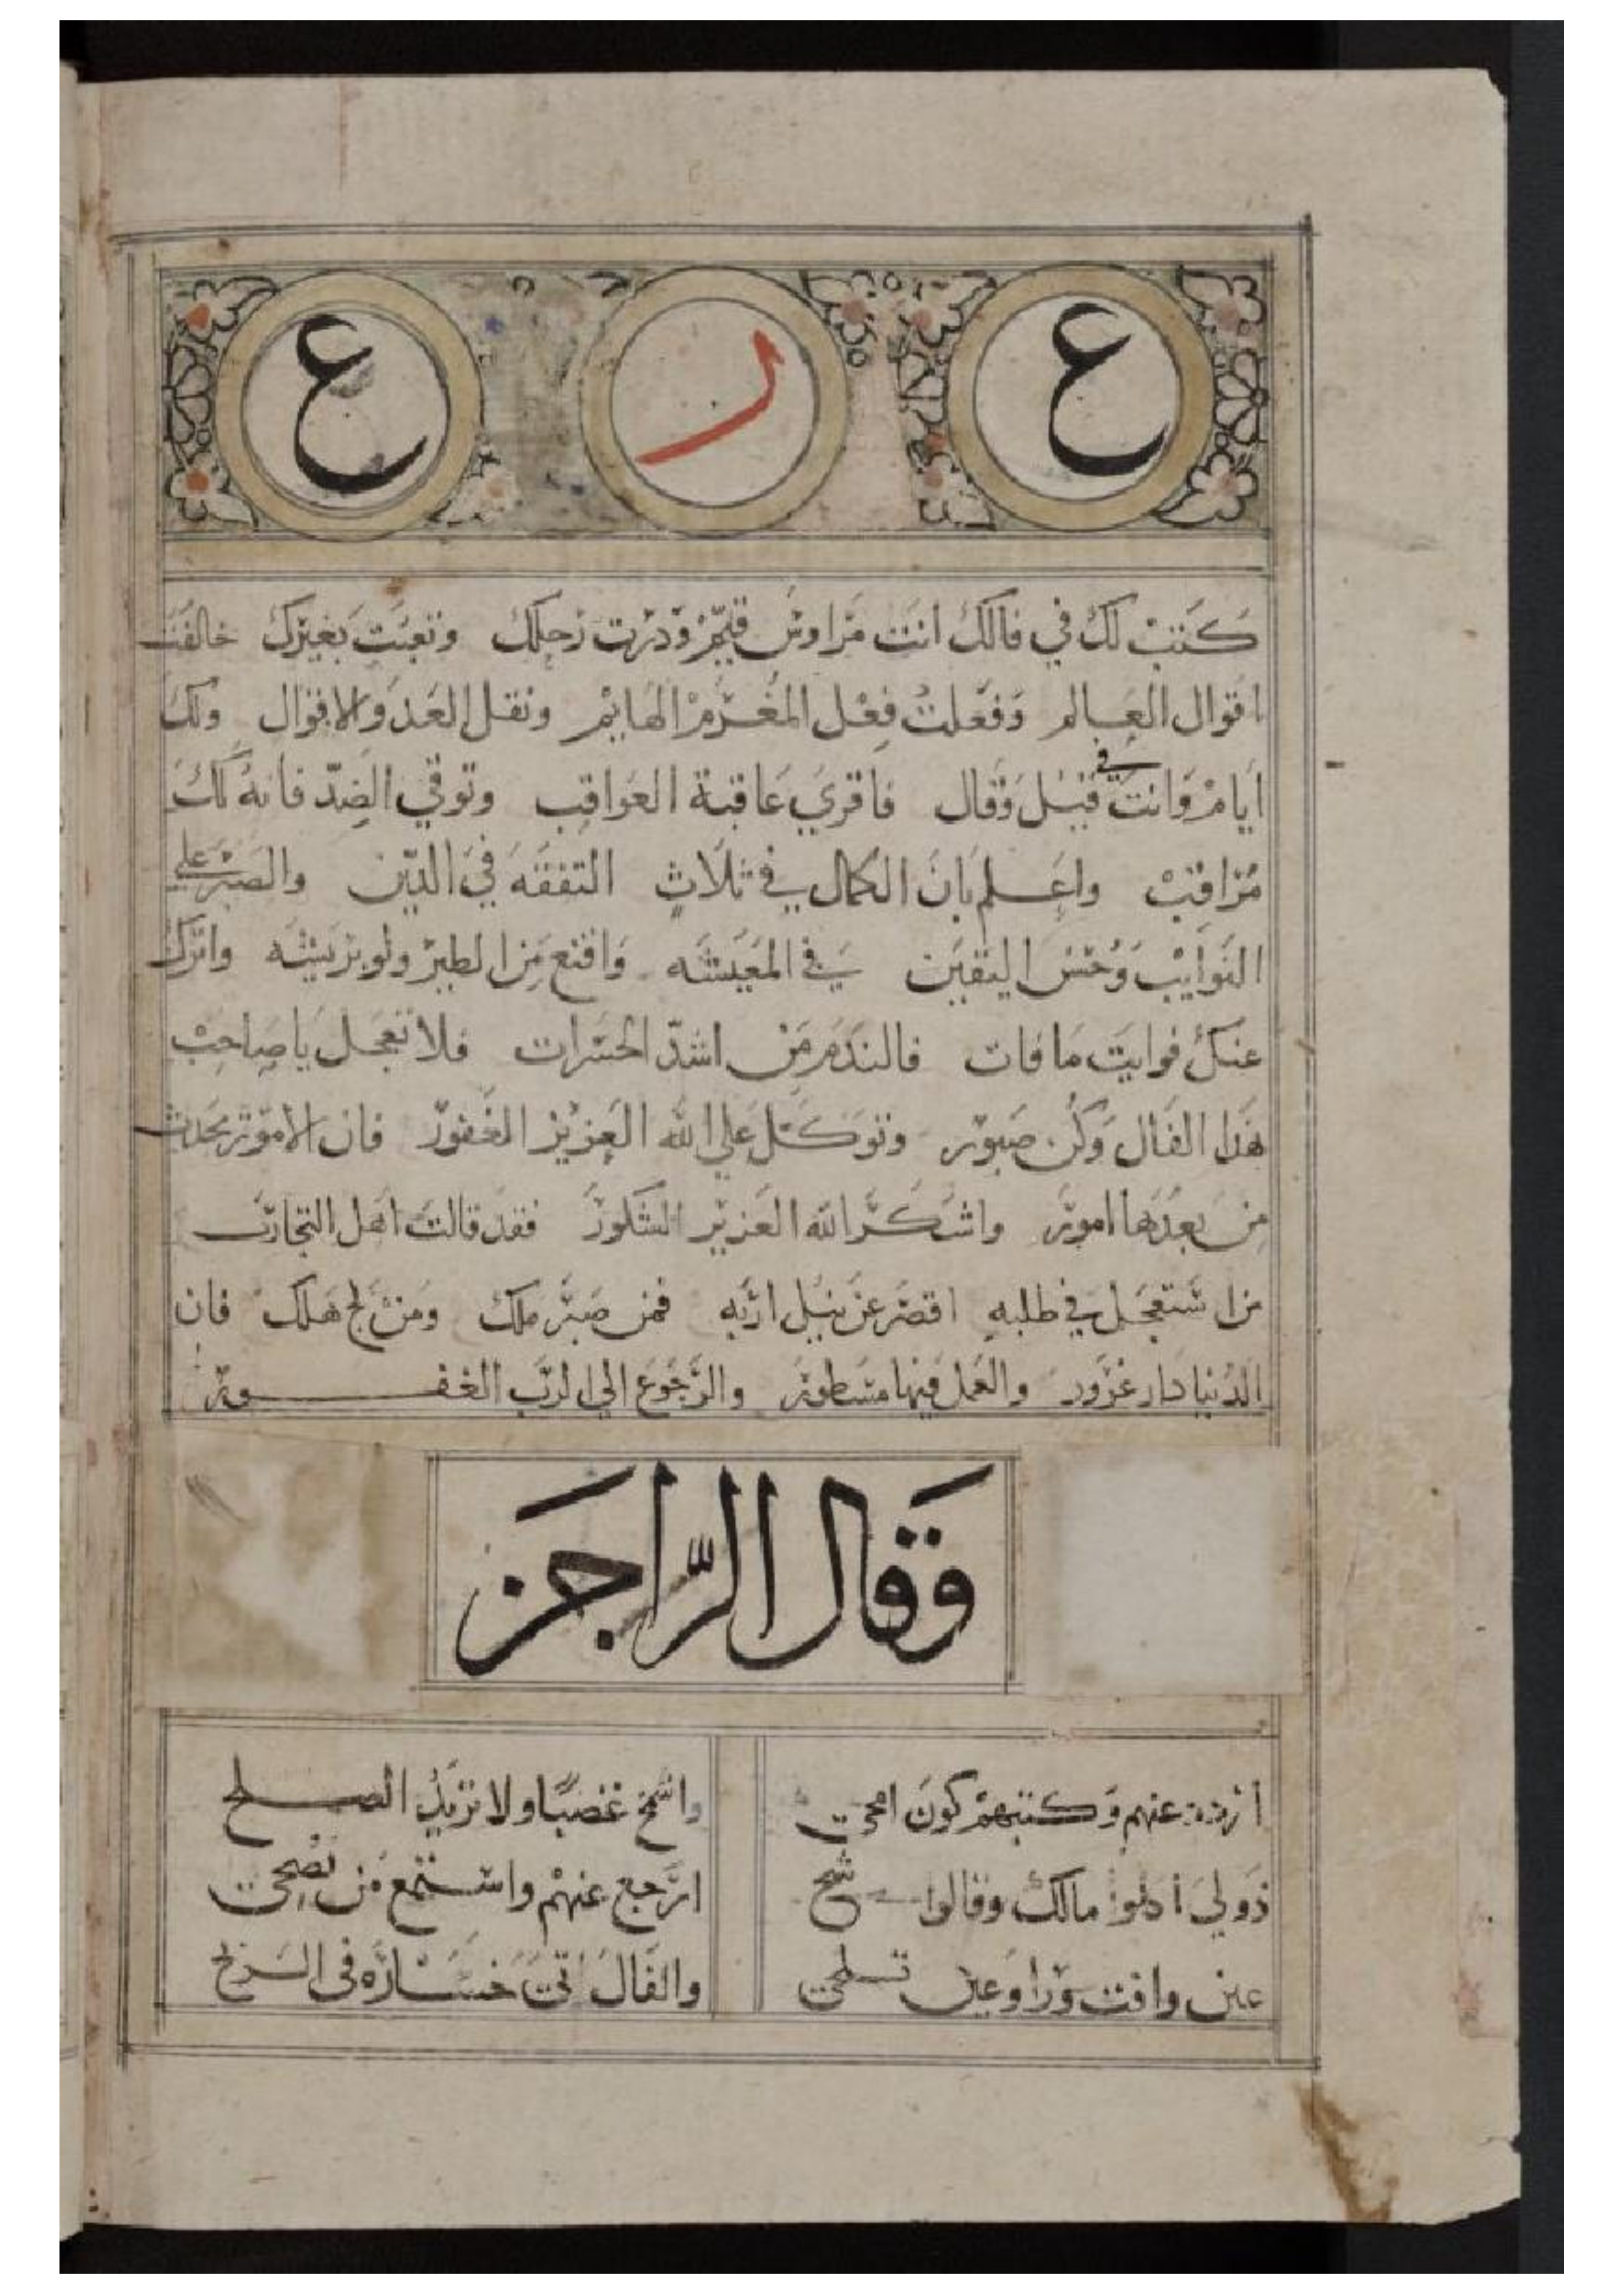 ع ر ع
كتبت لك في فالك انت مراوش قيم ودرت رحلك وتعبت بغيرك خالفت
اقوال العالم وفعلت فعل المغرم الهايم ونقل العد والاقوال ولك
ايام وانت في قيل وقال فاقري عاقبة العواقب وتوقي الضد فانه لك
مراقب واعلم بان الكمال في ثلاث التفقه في الدين والصبر علي
النوايب وحسن اليقين في المعيشه واقنع من الطير ولو بريشه واترك
عنك فوايت ما فات فالندم من اشد الحسرات فلا تعجل يا صاحب
هذا الفال وكن صبور وتوكل علي الله العزيز الغفور فان الامور يحدث
من بعدها امور واشكر الله العزيز الشكور فقد قالت اهل التجارب
من استعجل في طلبه اقصر عن نيل اربه فمن صبر ملك ومن لج هلك فان
الدنيا دار غرور والعمل فيها مسطور والرجوع الي الرب الغفور
وقال الراجز
عنهم وكتبهم كون امحي واسمح غضبا ولا تزيد الصلح
مالك وقالوا شح ارجع عنهم واستمع من نصحي
عين وافت ورا وعين تسلحي والفال اتي خساره في الربح